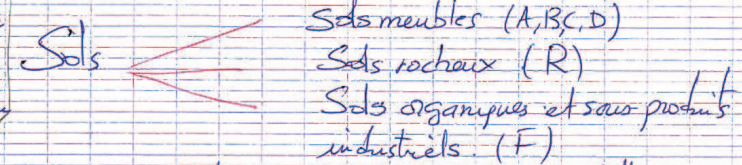 Sols meubles (A,B,C,D)
Sols
Sols rocheux (R)
Sols organiques et sous-produits
industriels. (F)